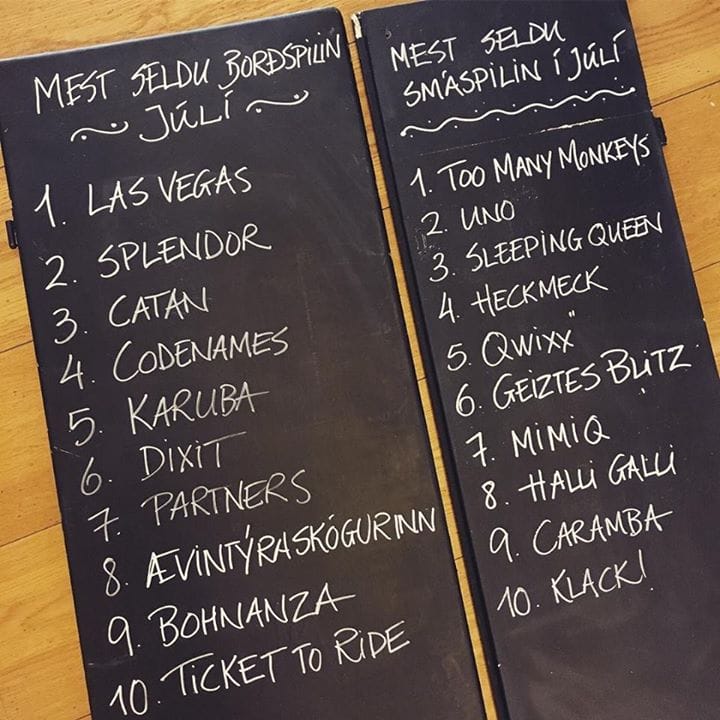 MEST SELDU BORÐSPILIN
JÚLÍ
1. LAS VEGAS
2. SPLENDOR
3. CATAN
4. CODENAMES
5. KARUBA
6. DIXIT
7. PARTNERS
8. ÆVINTÝRASKÓGURINN
9. BOHNANZA
10. TICKET TO RIDE
MEST SELDU
SMÁSPILIN Í JÚLÍ
1. TOO MANY MONKEYS
2. UNO
3. SLEEPING QUEEN
4. HECKMECK
5. QWIXX
6. GEIZTES BLITZ
7. MIMIQ
8. HALLI GALLI
9. CARAMBA
10. KLACK!